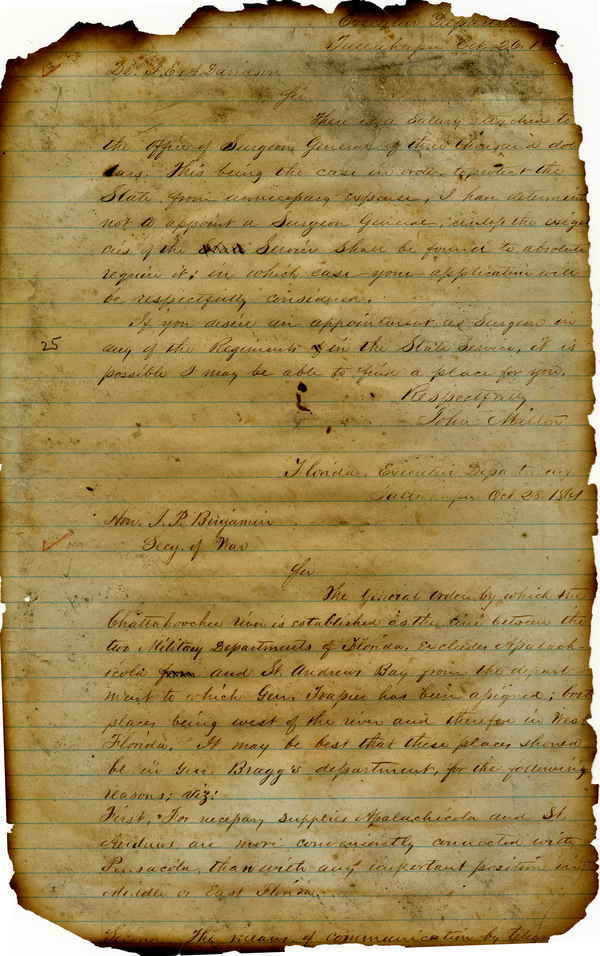 Executive Departm
Tallahassee Oct 26. 1
Dr. J. E. A Davidson
Sir
There is a Salary attached to
the Office of Surgeon General of three thousand dol
lars. This being the case in order to protect the
State from unnecessary expense, I have determined
not to appoint a Surgeon General, unless the exigen
cies of the Service Shall be found to absolutely
require it; in which case your application will
be respectfully considered.
If you desire an appointment as Surgeon in
25
any of the Regiments in the State Service, it is
possible I may be able to find a place for you.
Respectfully
John Milton
Florida, Executive Department
Tallahassee Oct 28. 1861
Hon. J. P. Benjamin
Secy. of War
Sir
The General order by which the
Chattahoochee river is established as the line between the
two Military Departments of Florida, excludes Apalach-
icola and St. Andrews Bay from the depart
ment to which Gen. Trapier has been assigned; both
places being west of the river and therefore in West
Florida. It may be best that these places should
be in Gen. Bragg's department, for the following
reasons; viz:
First, For necessary supplies Apalachicola and St.
Andrews are more conveniently connected with
Pensacola, than with any important position in
Middle or East Florida.
Second The means of communication by teleg